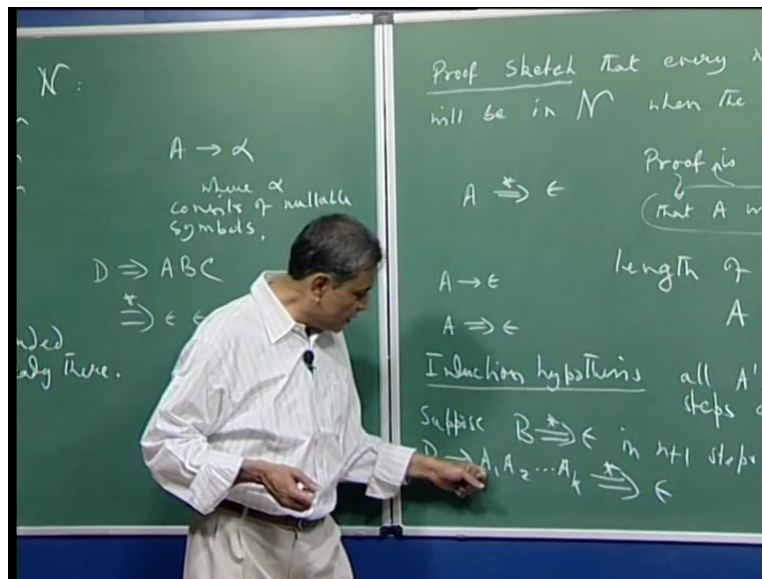 N:
A → α
where α
consists of nullable
symbols.
D ⇒ ABC
*⇒ ϵ ϵ
nded
eady there.
Proof sketch that every
will be in N when the
Proof is
A *⇒ ϵ
that A
length of
A → ϵ
A
A ⇒ ϵ
Induction hypothesis all A'
steps
Suppose B *⇒ ϵ in n+1 steps
→ A₁A₂...Aₖ *⇒ ϵ